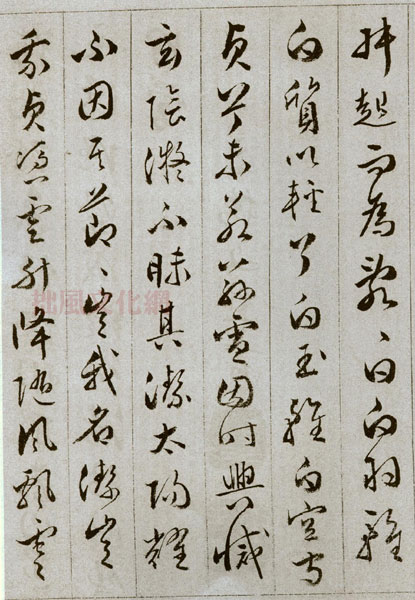 叔起而為亂〻曰白羽雖
白質以輕兮白玉雖白空守
貞兮未若茲雪因时興滅
玄陰凝不昧其潔太陽耀
不固其節〻豈我名潔豈
我貞憑雲升降隨風飄零
拙風文化網